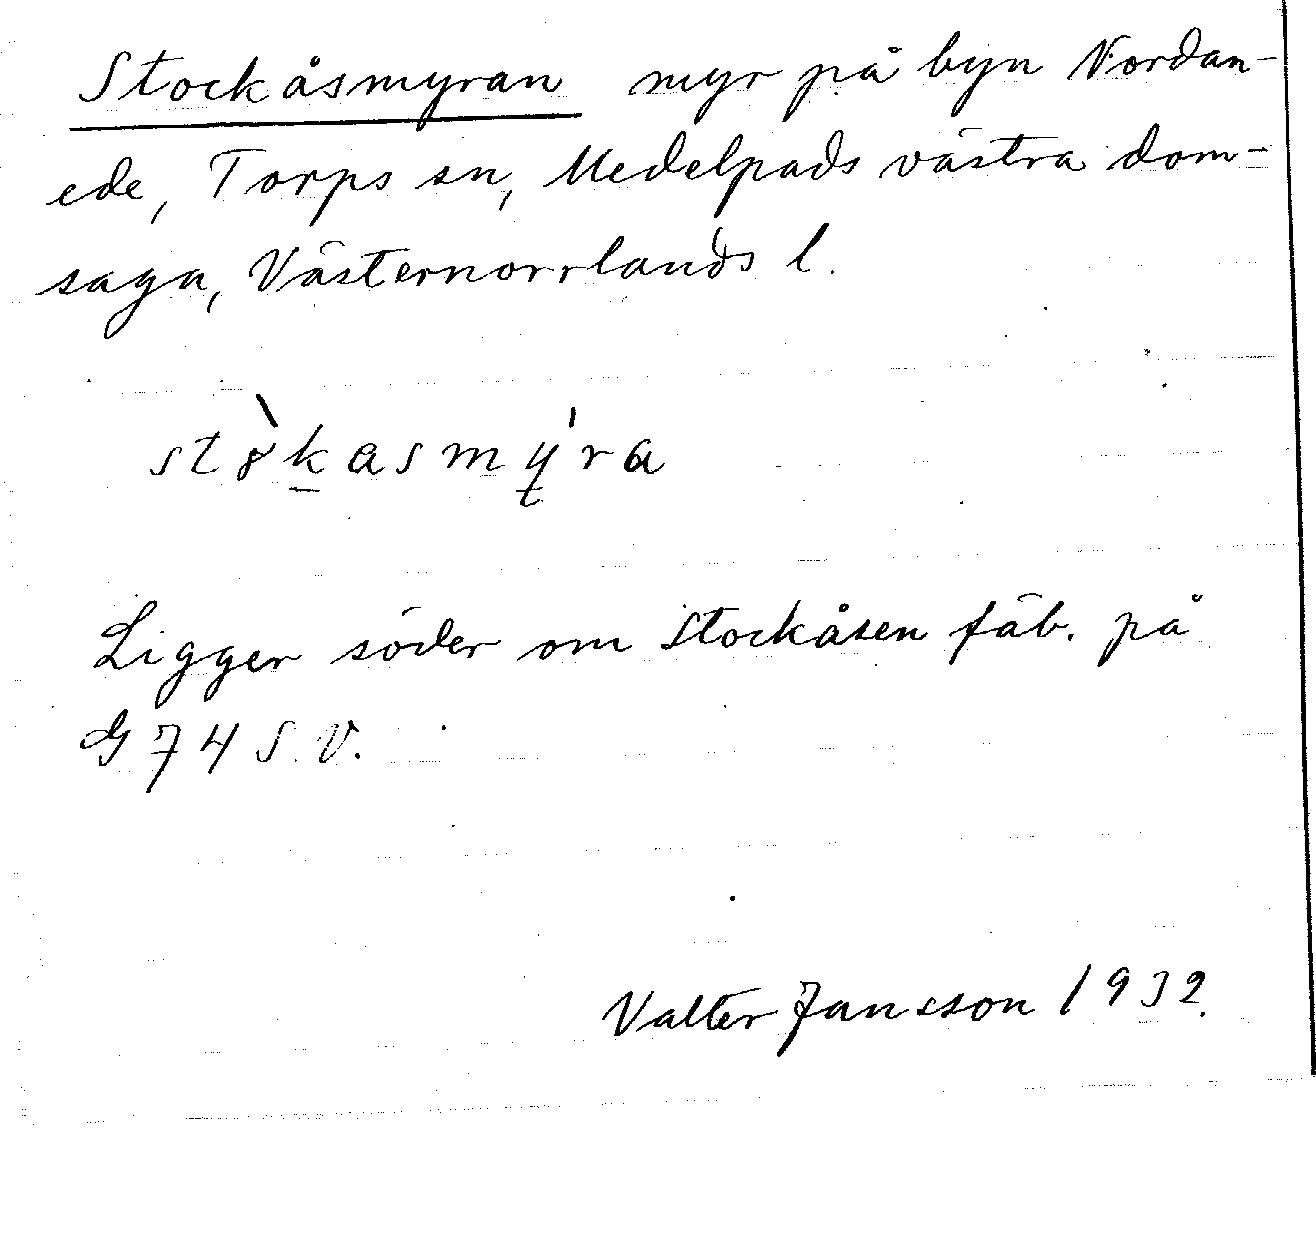 Stockåsmyran myr på byn Nordan-
ede, Torps sn, Medelpads västra dom-
saga, Västernorrlands l.
Ligger söder om Stockåsen fäb. på
G 74 S.V.
Valter Jansson 1932.